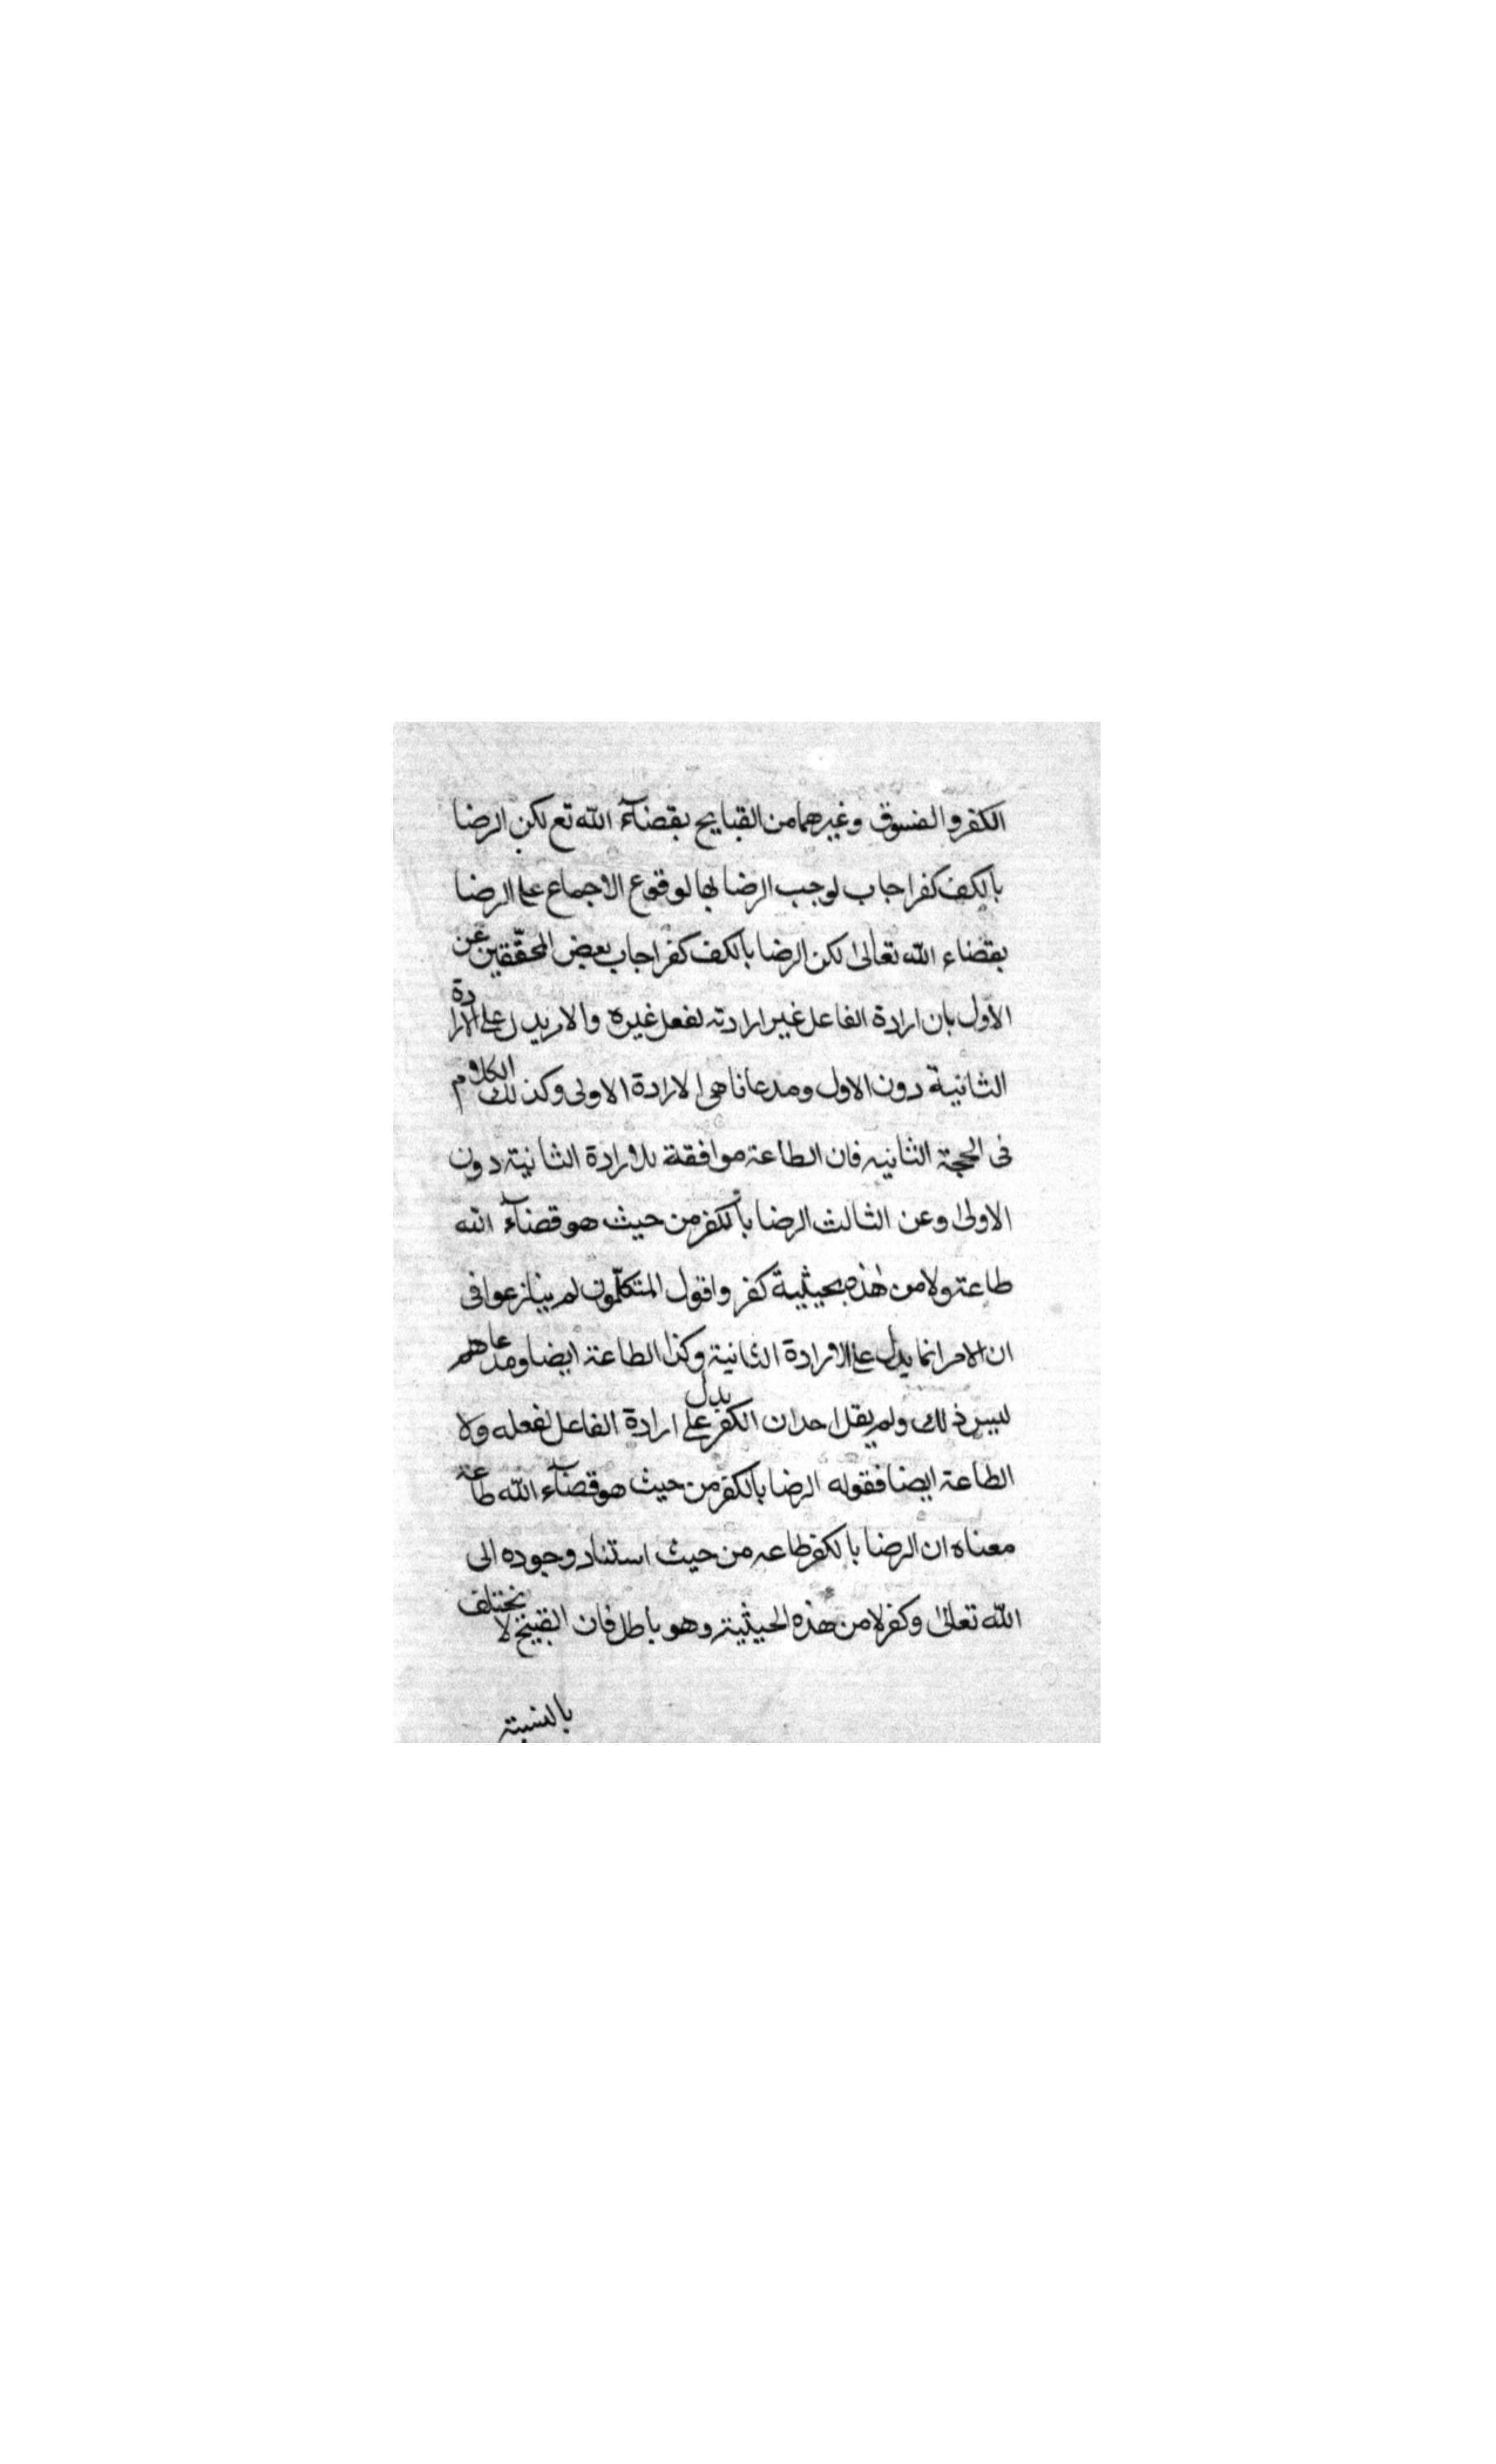 الكفر والفسوق وغيرهما من القبايح بقضآء الله تع لكن الرضا
بالكف كفر اجاب لوجب الرضا بها لوقوع الاجماع على الرضا
بقضاء الله تعالى لكن الرضا بالكف كفر اجاب بعض المحققين عن
الاول بان ارادة الفاعل غير ارادته لفعل غيره والامر يدل على الارادة
الثانية دون الاول ومدعانا هى الارادة الاولى وكذلك الكلام
فى الحجة الثانيه فان الطاعة موافقة للارادة الثانية دون
الاولى وعن الثالث الرضا بالكفر من حيث هو قضآء الله
طاعة ولا من هذه بحيثية كفر واقول المتكلمون لم ينازعوا فى
ان الامر انما يدل على الارادة الثانية وكذا الطاعة ايضا ومدعاهم
ليس ذلك ولم يقل احد ان الكفر يدل على ارادة الفاعل لفعله ولا
الطاعة ايضا فقوله الرضا بالكفر من حيث هو قضآء الله طاعة
معناه ان الرضا بالكفر طاعه من حيث استناد وجوده الى
الله تعالى وكفر لا من هذه الحيثية وهو باطل فان القبيح لا يختلف
بالنسبة